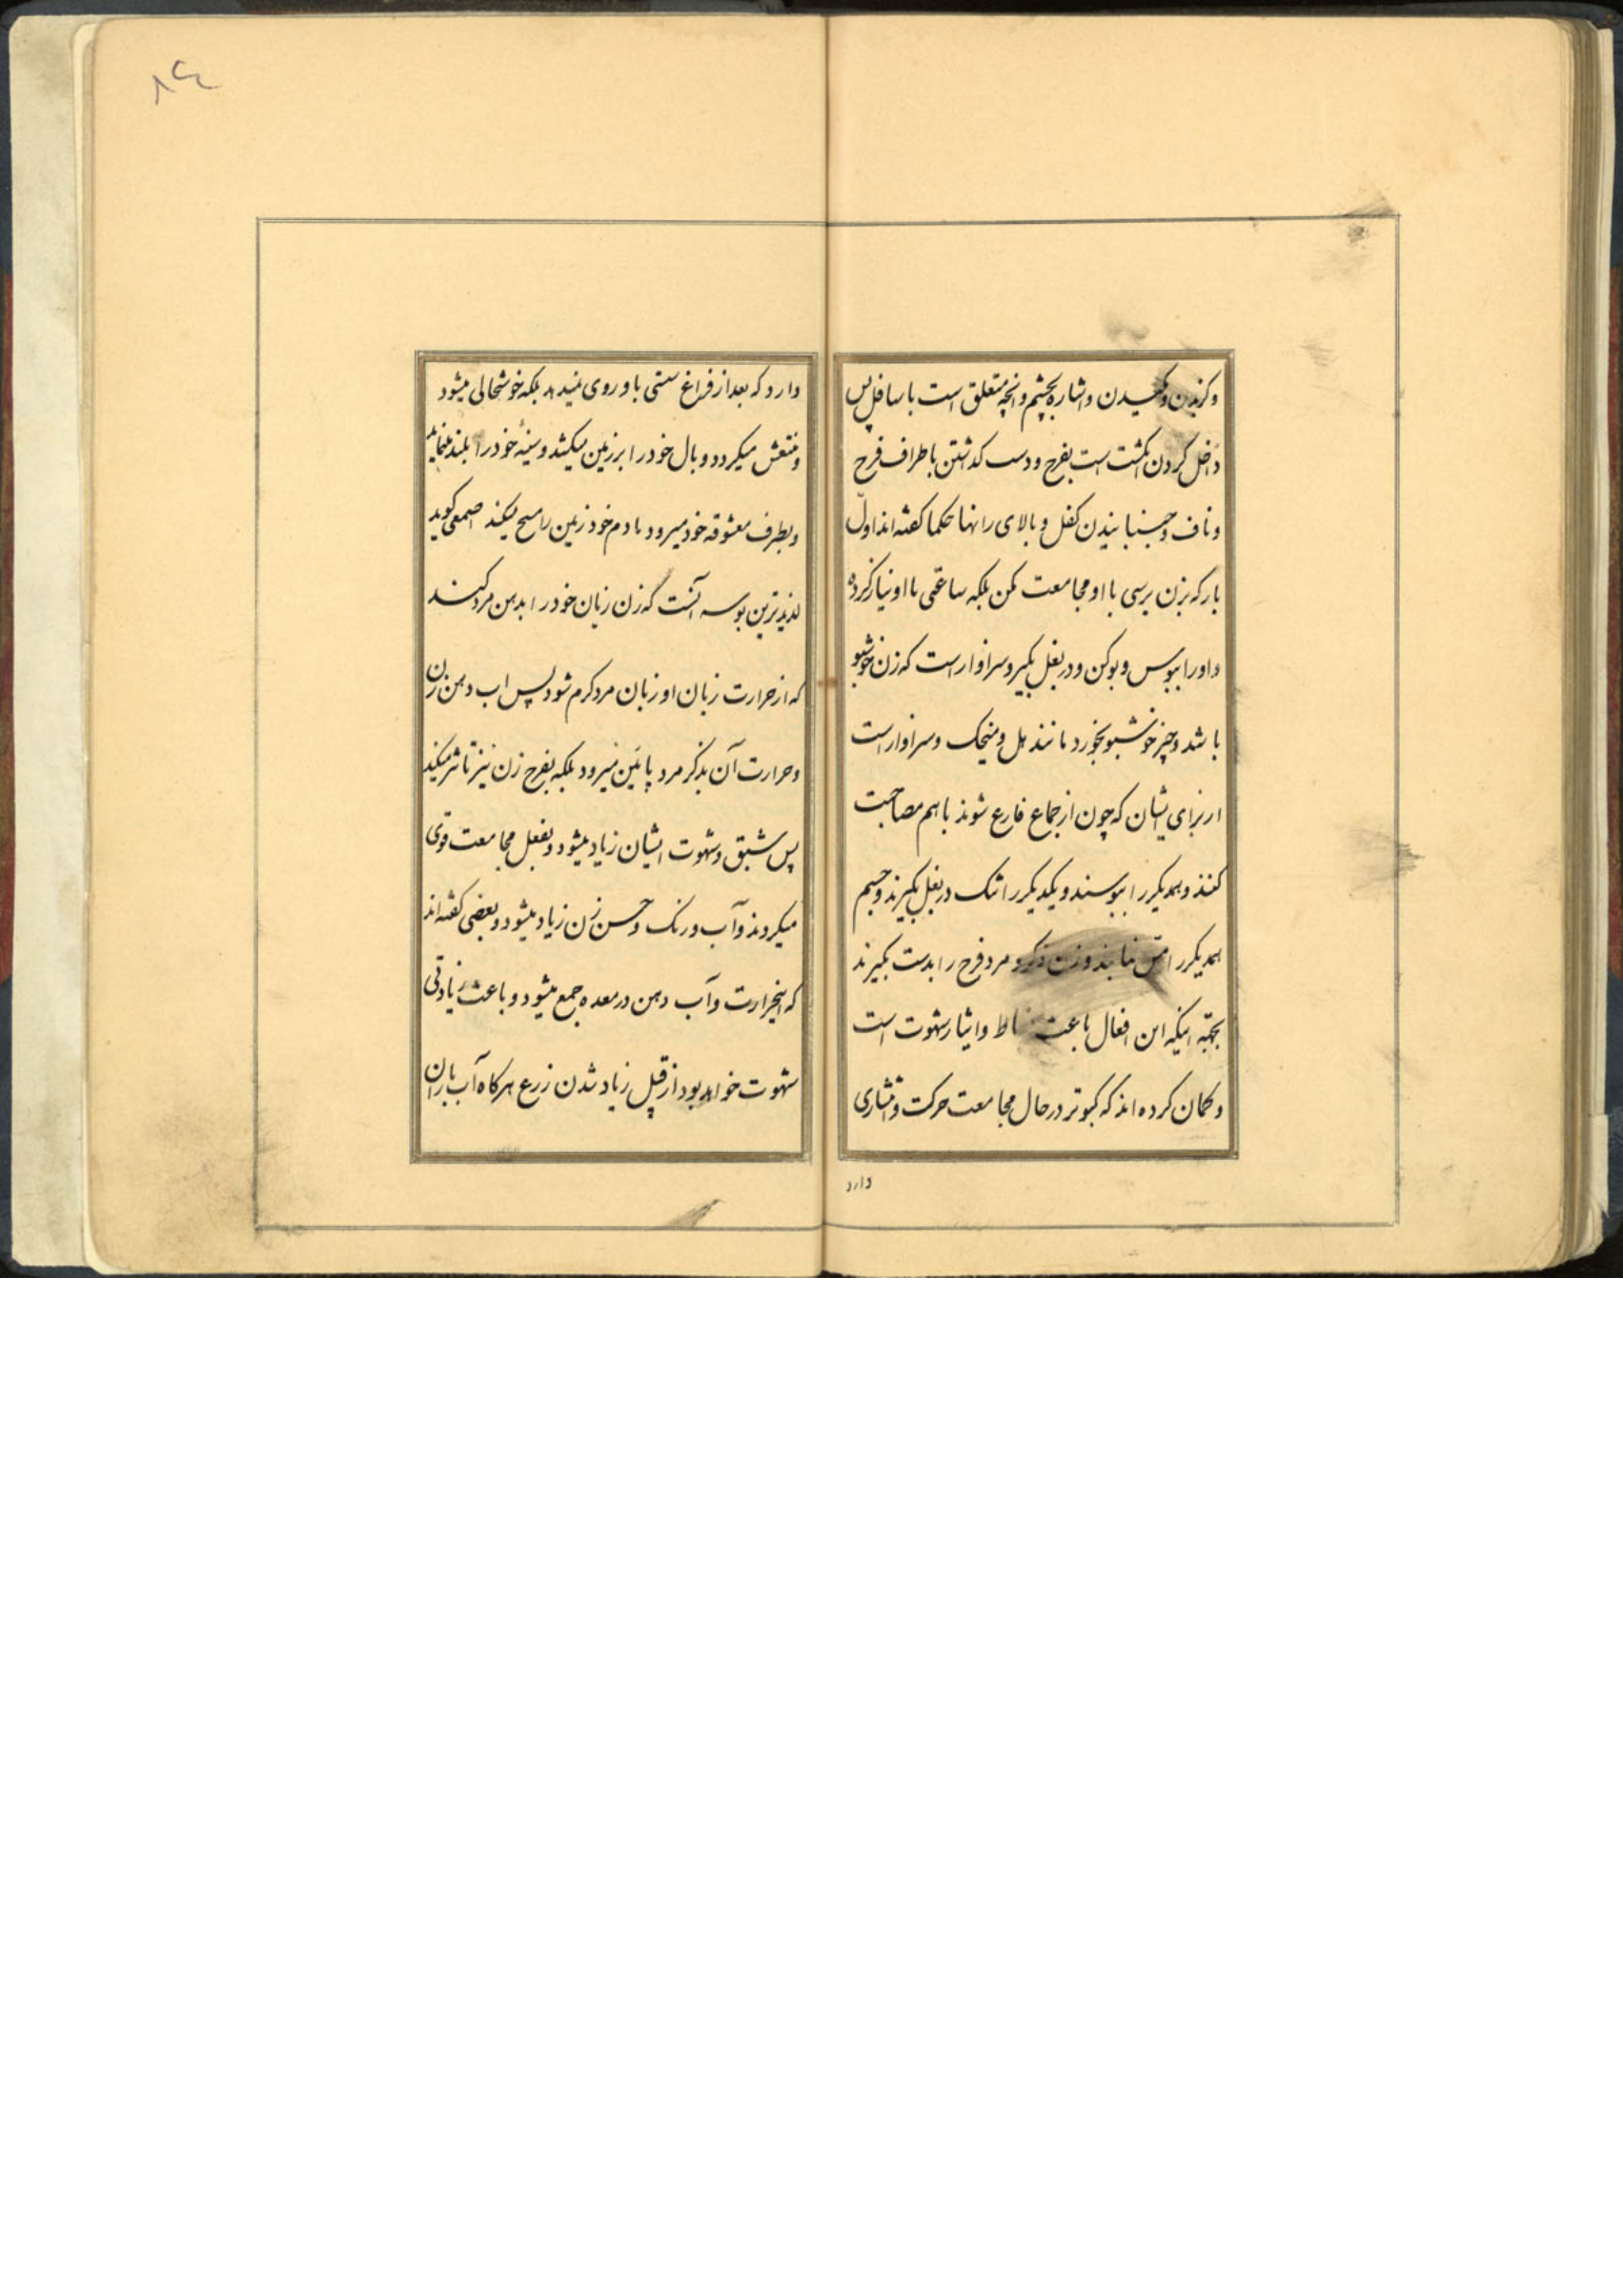 وکزیدن و مکیدن و اشاره بچشم و آنچه متعلق است باسافل پس
داخل کردن انکشت است بفرج و دست کذاشتن باطراف فرج
و ناف و جنبانیدن کفل و بالای رانها حکما کفته‌اند اول
بار که بزن برسی با او مجامعت مکن بلکه ساعتی با او نیاز کرده
و او را ببوس و بو کن و در بغل بکیر و سزاوار است که زن خوشبو
باشد و چیز خوشبو بخورد مانند هل و میخک و سزاوار است
از برای ایشان که چون از جماع فارغ شوند با هم مصاحبت
کنند و همدیکر را ببوسند و یکدیکر را تنک در بغل بکیرند و جسم
همدیکر را مس نمایند و زن ذکر و مرد فرج را بدست بکیرند
بجهة اینکه این افعال باعث نشاط و ایثار شهوت است
و کمان کرده‌اند که کبوتر در حال مجامعت حرکت و نشاری
دارد
۸۴
دارد که بعد از فراغ سستی باو روی نمیدهد بلکه خوشحالی میشود
و منتعش میکردد و بال خود را بر زمین میکشد و سینهٔ خود را بلند مینماید
و بطرف معشوقه خود میرود با دم خود زمین را مسح میکند اصمعی کوید
لذیذترین بوسه آنست که زن زبان خود را بدهن مرد کند
که از حرارت زبان او زبان مرد کرم شود پس اب دهن زن
و حرارت آن بذکر مرد پائین میرود بلکه بفرج زن نیز تاثیر میکند
پس شبق و شهوت ایشان زیاد میشود و بفعل مجامعت قوی
میکردند و آب و رنک و حسن زن زیاد میشود و بعضی کفته‌اند
که اینحرارت و آب دهن در معده جمع میشود و باعث زیادتی
شهوت خواهد بود از قبیل زیاد شدن زرع هرکاه آب باران